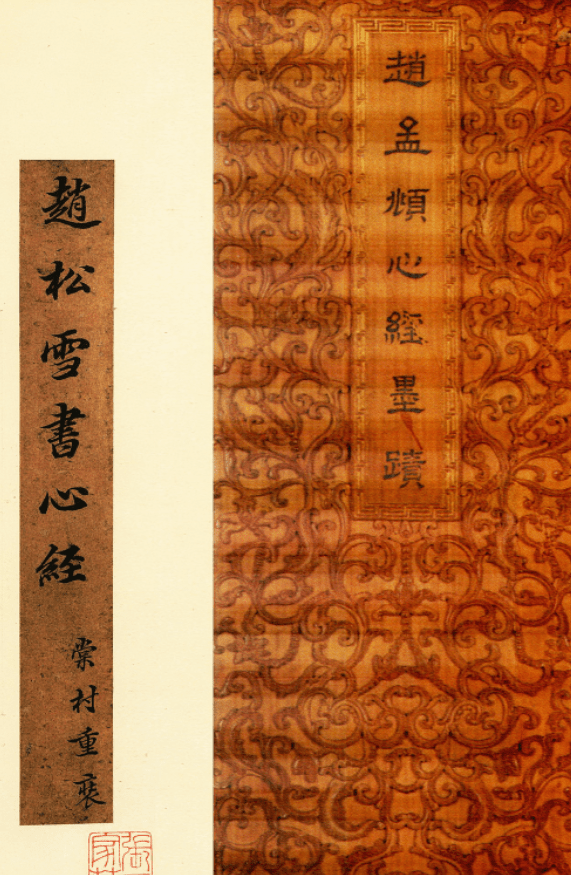 趙孟頫心經墨蹟
趙松雪書心經
棠村重裝